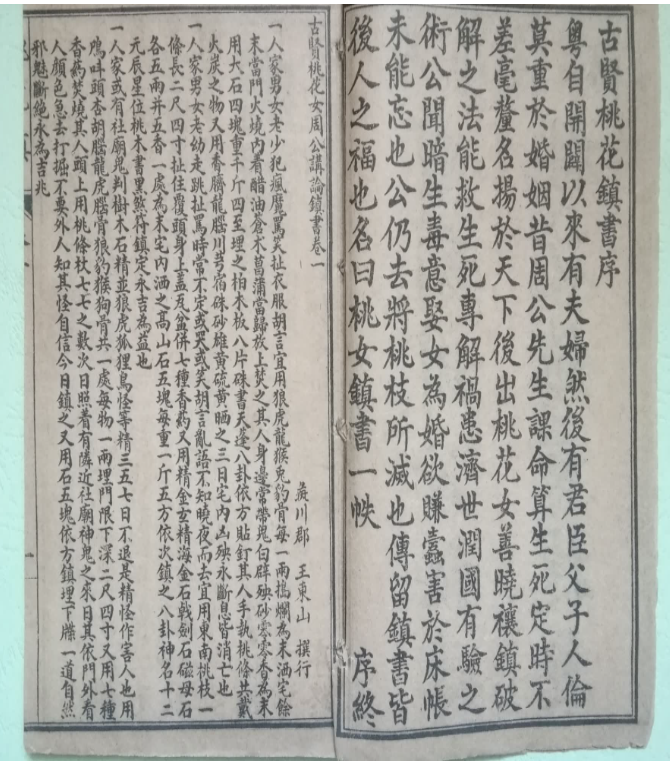 古賢桃花鎮書序
粵自開闢以來有夫婦然後有君臣父子人倫
莫重於婚姻昔周公先生課命算生死定時不
差毫釐名揚於天下後出桃花女善曉禳鎮破
解之法能救生死專解禍患濟世潤國有驗之
術公聞暗生毒意娶女為婚欲賺蠱害於床帳
未能忘也公仍去將桃枝所滅也傳留鎮書皆
後人之福也名曰桃女鎮書一帙 序終
古賢桃花女周公講論鎮書卷一
燕川郡 王東山 撰行
一人家男女老少犯瘋魔罵笑扯衣服胡言宜用狼虎龍猴兎豹骨每一兩搗爛為末洒宅餘
末當門火燒內看醋油蒼朮菖蒲當歸放上焚之其人身邊常帶鬼白辟殃砂零零香為末
用大石四塊重千斤四至埋之柏木板八片硃書天蓬八卦依方貼釘其人手執桃條共戴
火炭之物又用香臍龍川芎宿硃砂雄黃硫黃晒之三日宅內凶殃永斷息皆消亡也
一人家男女老幼走跳扯罵時常不定或哭或笑胡言亂語不知曉夜而去宜用東南桃枝一
條長二尺四寸扯住覆頭身上蓋瓦盆併七種香葯又用精金玄精海金石戟劍石磁母石
各五兩并五香一處為末宅內洒之高山石五塊每重一斤五方依次鎮之八卦神名十二
元辰星位桃木書黑煞符鎮定永吉為益也
一人家或有社廟鬼判樹木石精並狼虎狐狸鳥怪等精三五七日不退是精怪作害人也用
鴆吽頭杏胡腦龍虎腦骨狼豹猴狗骨共一處每物一兩埋門限下深二尺四寸又用七種
香葯焚燒其人頭上用桃條杖七七之數次日照着有隣近社廟神鬼之來日其依門外看
人顏色急去打掘不要外人知其怪自信今日鎮之又用石五塊依方鎮埋下牒一道自然
邪魅斷絕永為吉兆